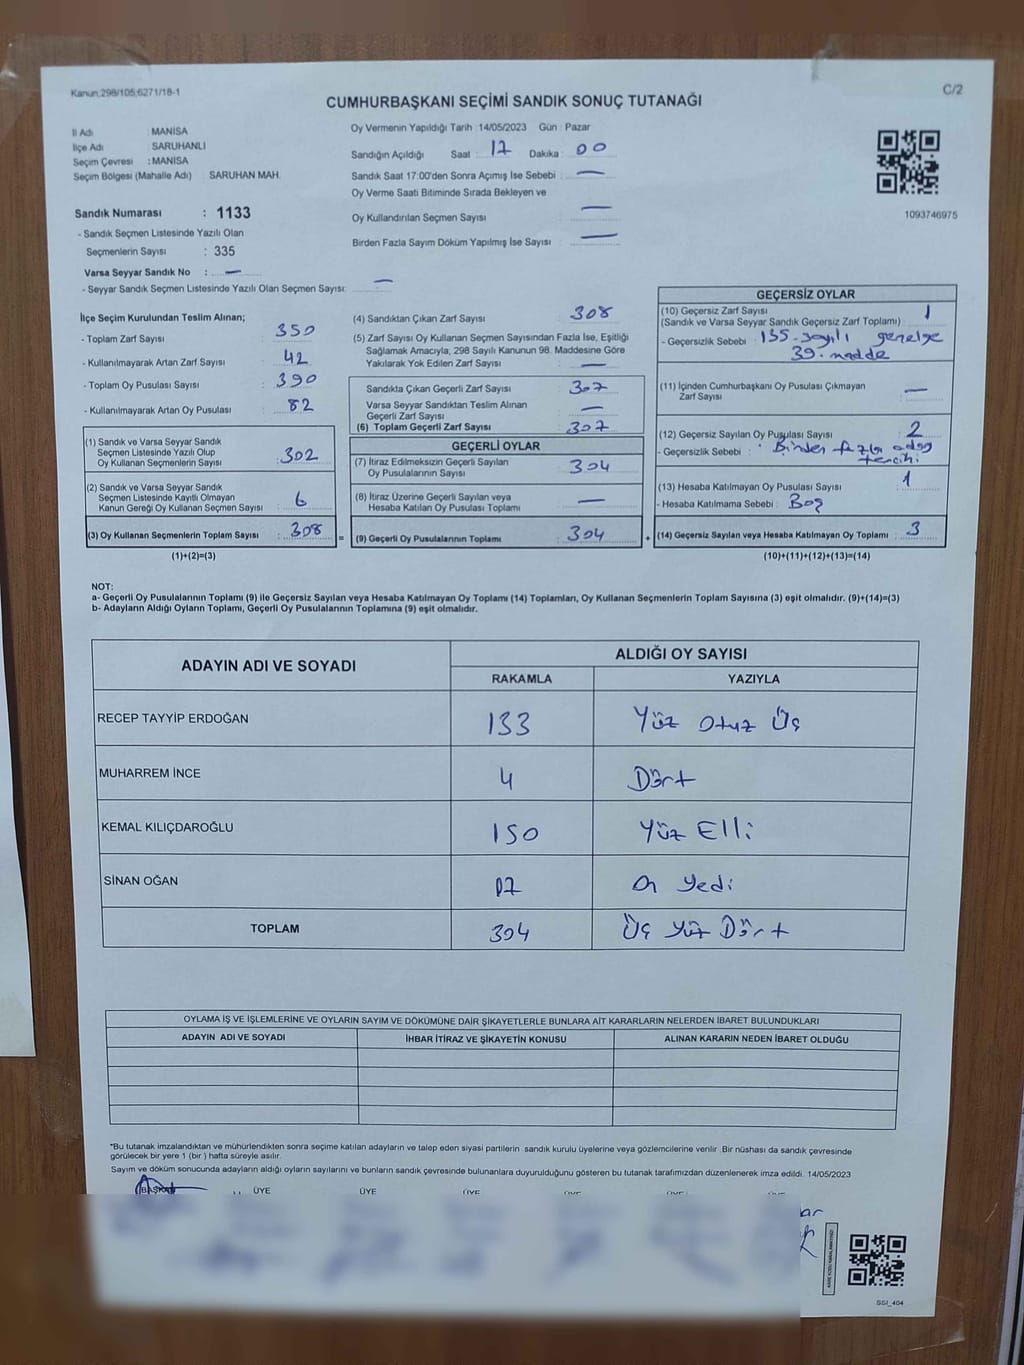 Kanun;298/105,6271/18-1
C/2
CUMHURBAŞKANI SEÇİMİ SANDIK SONUÇ TUTANAĞI
İl Adı : MANİSA
İlçe Adı : SARUHANLI
Seçim Çevresi : MANİSA
Seçim Bölgesi (Mahalle Adı) : SARUHAN MAH.
Sandık Numarası : 1133
- Sandık Seçmen Listesinde Yazılı Olan
Seçmenlerin Sayısı : 335
Varsa Seyyar Sandık No : —
- Seyyar Sandık Seçmen Listesinde Yazılı Olan Seçmen Sayısı: —
Oy Vermenin Yapıldığı Tarih : 14/05/2023 Gün : Pazar
Sandığın Açıldığı Saat : 17 Dakika : 00
Sandık Saat 17:00'den Sonra Açımış İse Sebebi : —
Oy Verme Saati Bitiminde Sırada Bekleyen ve
Oy Kullandırılan Seçmen Sayısı : —
Birden Fazla Sayım Döküm Yapılmış İse Sayısı : —
1093746975
İlçe Seçim Kurulundan Teslim Alınan;
- Toplam Zarf Sayısı : 350
- Kullanılmayarak Artan Zarf Sayısı : 42
- Toplam Oy Pusulası Sayısı : 390
- Kullanılmayarak Artan Oy Pusulası : 82
(1) Sandık ve Varsa Seyyar Sandık
Seçmen Listesinde Yazılı Olup
Oy Kullanan Seçmenlerin Sayısı : 302
(2) Sandık ve Varsa Seyyar Sandık
Seçmen Listesinde Kayıtlı Olmayan
Kanun Gereği Oy Kullanan Seçmen Sayısı : 6
(3) Oy Kullanan Seçmenlerin Toplam Sayısı : 308
(1)+(2)=(3)
(4) Sandıktan Çıkan Zarf Sayısı : 308
(5) Zarf Sayısı Oy Kullanan Seçmen Sayısından Fazla İse, Eşitliği
Sağlamak Amacıyla, 298 Sayılı Kanunun 98. Maddesine Göre
Yakılarak Yok Edilen Zarf Sayısı : —
Sandıkta Çıkan Geçerli Zarf Sayısı : 307
Varsa Seyyar Sandıktan Teslim Alınan
Geçerli Zarf Sayısı : —
(6) Toplam Geçerli Zarf Sayısı : 307
GEÇERLİ OYLAR
(7) İtiraz Edilmeksizin Geçerli Sayılan
Oy Pusulalarının Sayısı : 304
(8) İtiraz Üzerine Geçerli Sayılan veya
Hesaba Katılan Oy Pusulası Toplamı : —
= (9) Geçerli Oy Pusulalarının Toplamı : 304
GEÇERSİZ OYLAR
(10) Geçersiz Zarf Sayısı
(Sandık ve Varsa Seyyar Sandık Geçersiz Zarf Toplamı) : 1
- Geçersizlik Sebebi : 135 sayılı genelge
39. madde
(11) İçinden Cumhurbaşkanı Oy Pusulası Çıkmayan
Zarf Sayısı : —
(12) Geçersiz Sayılan Oy Pusulası Sayısı : 2
- Geçersizlik Sebebi : Birden fazla aday
tercihi
(13) Hesaba Katılmayan Oy Pusulası Sayısı : 1
- Hesaba Katılmama Sebebi : Boş
+ (14) Geçersiz Sayılan veya Hesaba Katılmayan Oy Toplamı : 3
(10)+(11)+(12)+(13)=(14)
NOT:
a- Geçerli Oy Pusulalarının Toplamı (9) ile Geçersiz Sayılan veya Hesaba Katılmayan Oy Toplamı (14) Toplamları, Oy Kullanan Seçmenlerin Toplam Sayısına (3) eşit olmalıdır. (9)+(14)=(3)
b- Adayların Aldığı Oyların Toplamı, Geçerli Oy Pusulalarının Toplamına (9) eşit olmalıdır.
ADAYIN ADI VE SOYADI ALDIĞI OY SAYISI
RAKAMLA YAZIYLA
RECEP TAYYİP ERDOĞAN 133 Yüz Otuz Üç
MUHARREM İNCE 4 Dört
KEMAL KILIÇDAROĞLU 150 Yüz Elli
SİNAN OĞAN 17 On Yedi
TOPLAM 304 Üç Yüz Dört
OYLAMA İŞ VE İŞLEMLERİNE VE OYLARIN SAYIM VE DÖKÜMÜNE DAİR ŞİKAYETLERLE BUNLARA AİT KARARLARIN NELERDEN İBARET BULUNDUKLARI
ADAYIN ADI VE SOYADI İHBAR İTİRAZ VE ŞİKAYETİN KONUSU ALINAN KARARIN NEDEN İBARET OLDUĞU
*Bu tutanak imzalandıktan ve mühürlendikten sonra seçime katılan adayların ve talep eden siyasi partilerin sandık kurulu üyelerine veya gözlemcilerine verilir. Bir nüshası da sandık çevresinde
görülecek bir yere 1 (bir) hafta süreyle asılır.
Sayım ve döküm sonucunda adayların aldığı oyların sayılarını ve bunların sandık çevresinde bulunanlara duyurulduğunu gösteren bu tutanak tarafımızdan düzenlenerek imza edildi. 14/05/2023
BAŞKAN ÜYE ÜYE ÜYE ÜYE ÜYE
SSI_404